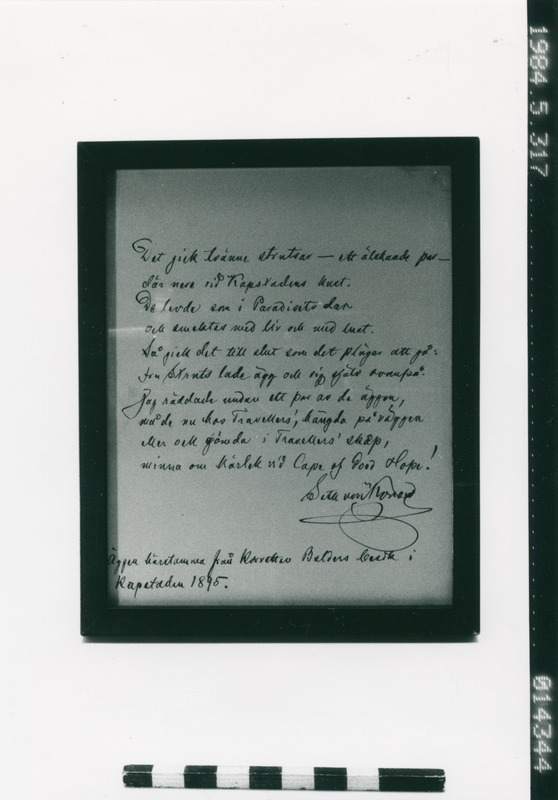 Det gick tvänne strutsar — ett älskande par —
där nere vid Kapstadens kust.
De levde som i Paradisets dar
och smektes med liv och med lust.
Så gick det till slut som det plägar att gå:
fru Struts lade ägg och sig själv ovanpå.
Jag räddade undan ett par av de äggen,
må de nu hos Travellers' hängda på väggen
eller och gömda i Travellers' skåp,
minna om kärlek vid Cape of Good Hope!
Seth von
Äggen härstamma från Korvetten Balders besök i
Kapstaden 1895.
1984.5.317
014344